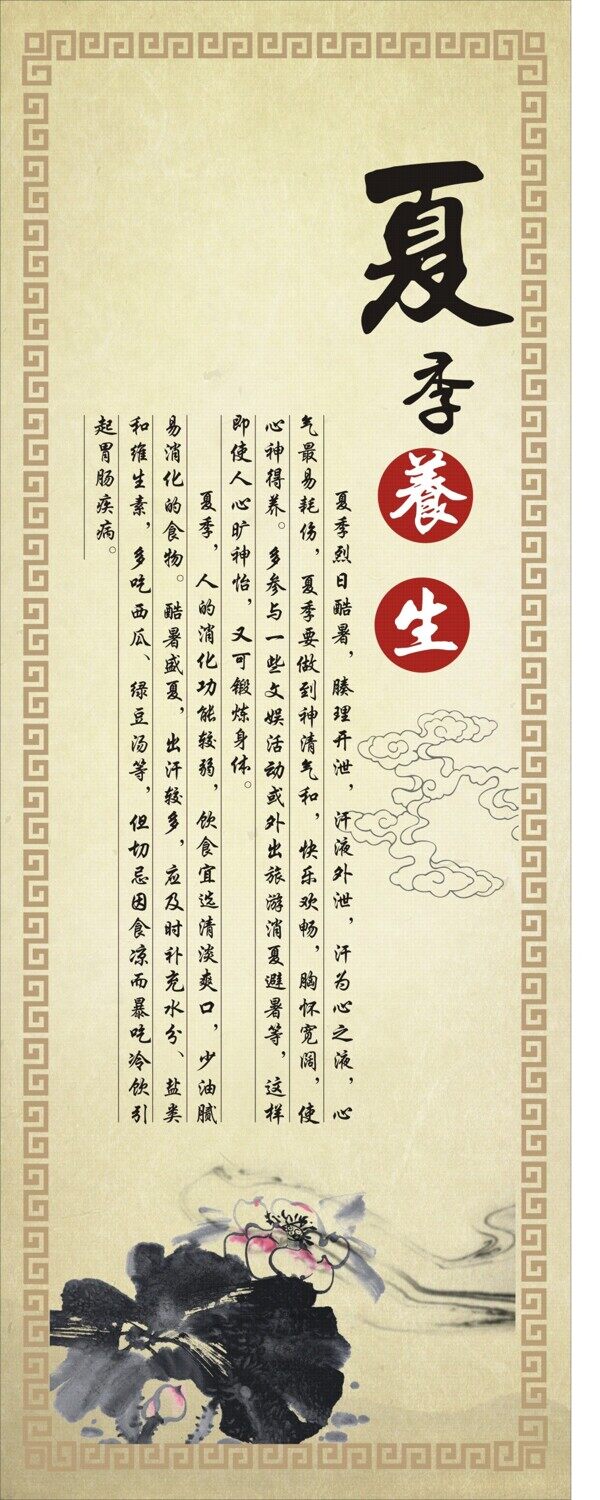 夏季養生
夏季烈日酷暑，腠理开泄，汗液外泄，汗为心之液，心
气最易耗伤，夏季要做到神清气和，快乐欢畅，胸怀宽阔，使
心神得养。多参与一些文娱活动或外出旅游消夏避暑等，这样
即使人心旷神怡，又可锻炼身体。
夏季，人的消化功能较弱，饮食宜选清淡爽口，少油腻
易消化的食物。酷暑盛夏，出汗较多，应及时补充水分、盐类
和维生素，多吃西瓜、绿豆汤等，但切忌因食凉而暴吃冷饮引
起胃肠疾病。